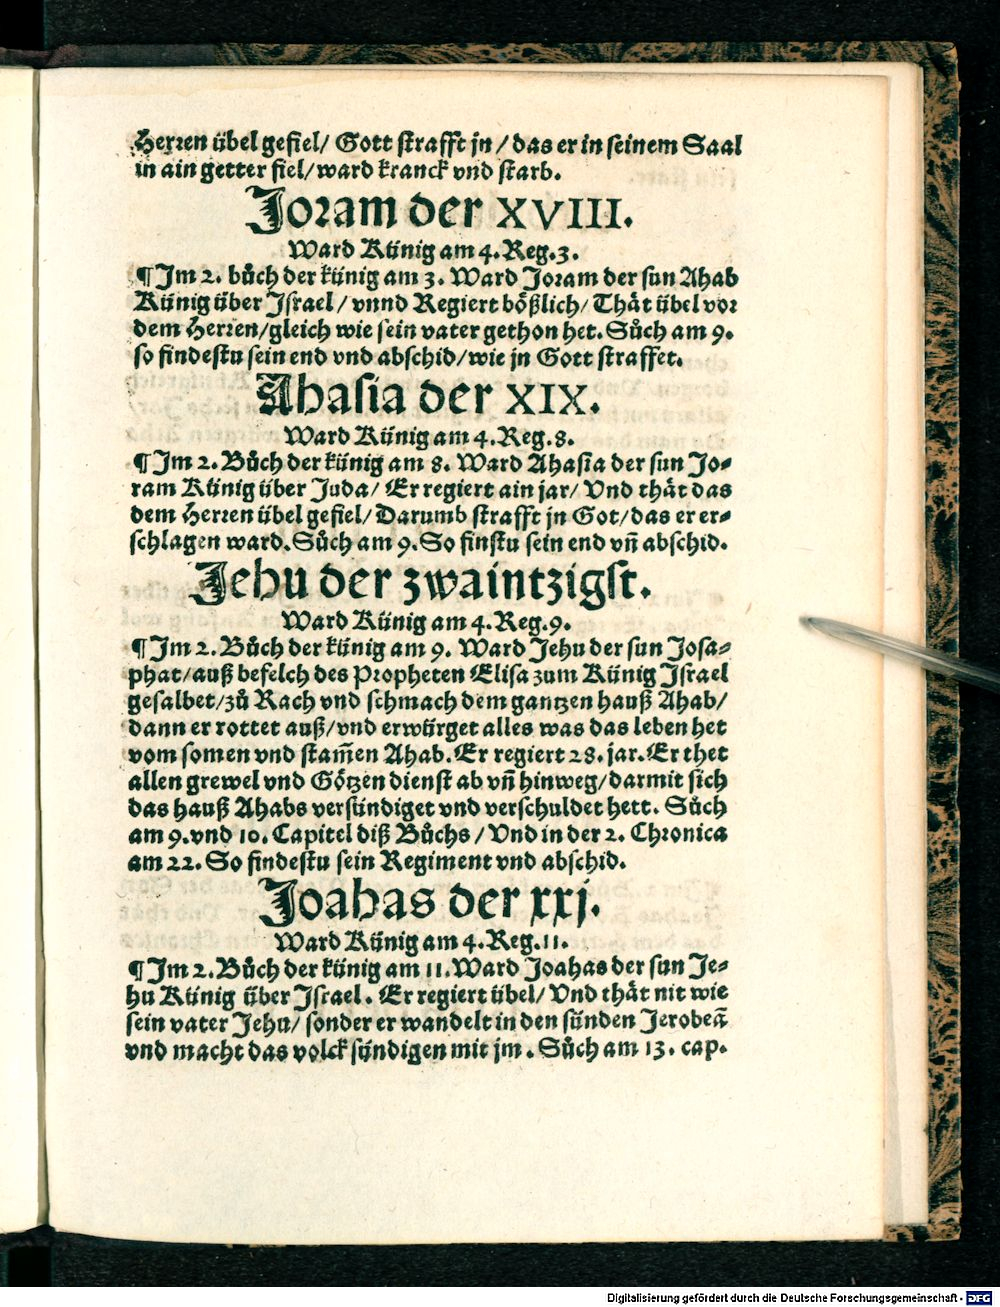 Herren übel gefiel/ Gott strafft jn / das er in seinem Saal
in ain getter fiel/ ward kranck vnd starb.
Joram der XVIII.
Ward Künig am 4. Reg. 3.
¶ Im 2. bůch der künig am 3. Ward Joram der sun Ahab
Künig über Israel / vnnd Regiert bößlich/ Thät übel vor
dem Herren/ gleich wie sein vater gethon het. Sůch am 9.
so findestu sein end vnd abschid/ wie jn Gott straffet.
Ahasia der XIX.
Ward Künig am 4. Reg. 8.
¶ Im 2. Bůch der künig am 8. Ward Ahasia der sun Jo-
ram Künig über Juda/ Er regiert ain jar/ Vnd thät das
dem Herren übel gefiel/ Darumb strafft jn Got/ das er er-
schlagen ward. Sůch am 9. So finstu sein end vñ abschid.
Jehu der zwaintzigst.
Ward Künig am 4. Reg. 9.
¶ Im 2. Bůch der künig am 9. Ward Jehu der sun Josa-
phat/ auß befelch des Propheten Elisa zum Künig Israel
gesalbet/ zů Rach vnd schmach dem gantzen hauß Ahab/
dann er rottet auß/ vnd erwürget alles was das leben het
vom somen vnd stam̃en Ahab. Er regiert 28. jar. Er thet
allen grewel vnd Götzen dienst ab vñ hinweg/ darmit sich
das hauß Ahabs versündiget vnd verschuldet hett. Sůch
am 9. vnd 10. Capitel diß Bůchs / Vnd in der 2. Chronica
am 22. So findestu sein Regiment vnd abschid.
Joahas der xxj.
Ward Künig am 4. Reg. 11.
¶ Im 2. Bůch der künig am 11. Ward Joahas der sun Je-
hu Künig über Israel. Er regiert übel/ Vnd thät nit wie
sein vater Jehu/ sonder er wandelt in den sünden Jerobeã
vnd macht das volck sündigen mit jm. Sůch am 13. cap.
Digitalisierung gefördert durch die Deutsche Forschungsgemeinschaft - DFG